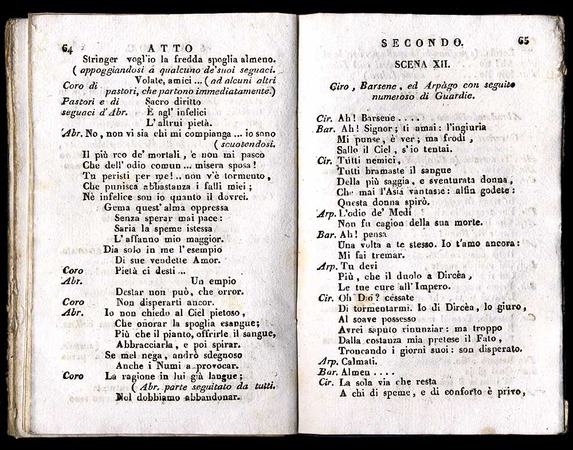 64 ATTO
Stringer vogl'io la fredda spoglia almeno.
( appoggiandosi à qualcuno de'suoi seguaci.
Volate, amici ... ( ad alcuni altri
Coro di pastori, che partono immediatamente.)
Pastori e di Sacro diritto
seguaci d'Abr. È agl' infelici
L'altrui pietà.
Abr. No, non vi sia chi mi compianga ... io sono
( scuotendosi.
Il più reo de' mortali, e non mi pasco
Che dell' odio comun ... misera sposa!
Tu peristi per me!.. non v'è tormento,
Che punisca abbastanza i falli miei;
Nè infelice son io quanto il dovrei.
Gema quest' alma oppressa
Senza sperar mai pace:
Saria la speme istessa
L'affanno mio maggior.
Dia solo in me l'esempio
Di sue vendette Amor.
Coro Pietà ci desti ...
Abr. Un empio
Destar non può, che orror.
Coro Non disperarti ancor.
Abr. Io non chiedo al Ciel pietoso,
Che onorar la spoglia esangue;
Più che il pianto, offrirle il sangue,
Abbracciarla, e poi spirar.
Se mel nega, andrò sdegnoso
Anche i Numi a provocar.
Coro La ragione in lui già langue;
( Abr. parte seguitato da tutti.
Nol dobbiamo abbandonar.
SECONDO. 65
SCENA XII.
Ciro, Barsene, ed Arpàgo con seguito
numeroso di Guardie.
Cir. Ah! Barsene ....
Bar. Ah! Signor; ti amai: l'ingiuria
Mi punse, è ver; ma frodi,
Sallo il Ciel, s'io tentai.
Cir. Tutti nemici,
Tutti bramaste il sangue
Della più saggia, e sventurata donna,
Che mai l'Asia vantasse: alfin godete:
Questa donna spirò.
Arp. L'odio de' Medi
Non fu cagion della sua morte.
Bar. Ah! pensa
Una volta a te stesso. Io t'amo ancora:
Mi fai tremar.
Arp. Tu devi
Più, che il duolo a Dircèa,
Le tue cure all' Impero.
Cir. Oh Dio? cessate
Di tormentarmi. Io di Dircèa, lo giuro,
Al soave possesso
Avrei saputo rinunziar: ma troppo
Dalla costanza mia pretese il Fato,
Troncando i giorni suoi: son disperato.
Arp. Calmati.
Bar. Almen ....
Cir. La sola via che resta
A chi di speme, e di conforto è privo,